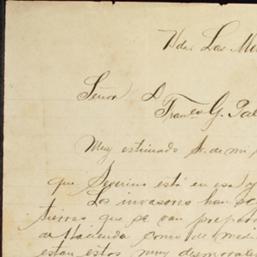 Hda. Las Mo
Señor D
Franco G. Pal
Muy estimado Sr. de mi
que Severino está en esa y
Los invasores han se
tierras que se van prepa
de Hacienda como de medi
estan estos muy desmorali